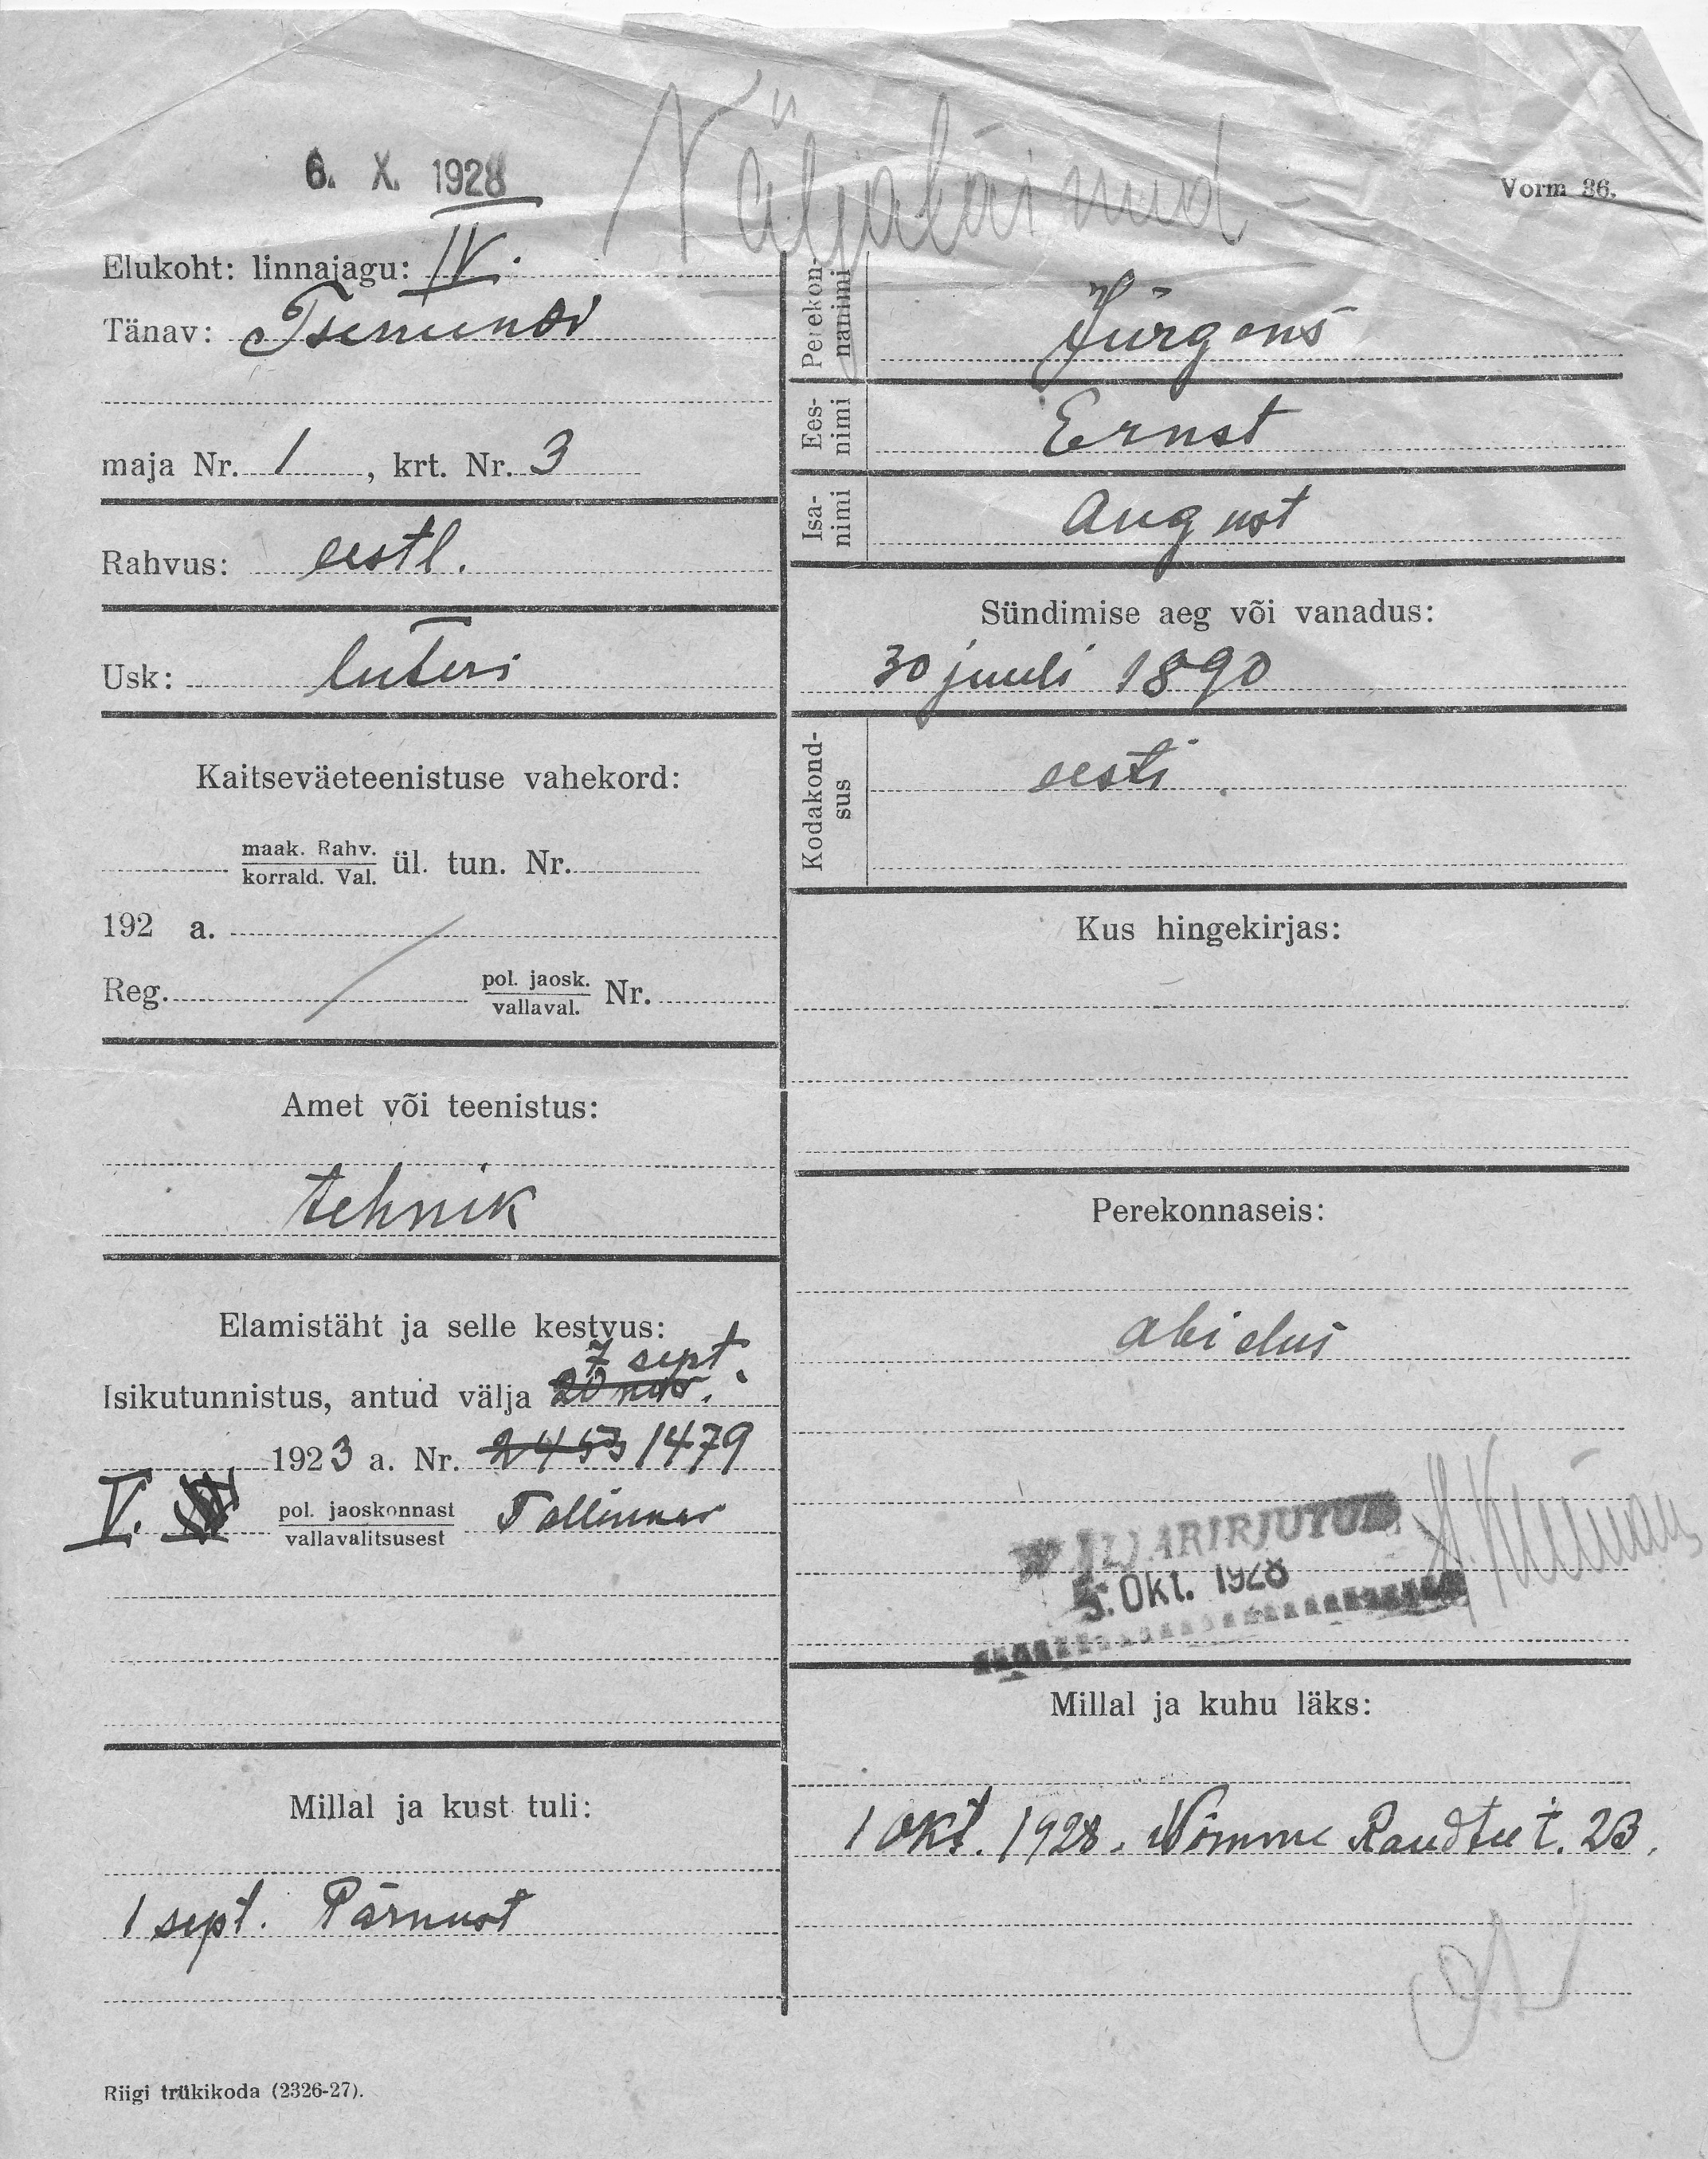 6. X. 1928
Väljakäinud
Vorm 36.
Elukoht: linnajagu: IV.
Tänav: Tsemendi
maja Nr. 1, krt. Nr. 3
Rahvus: eestl.
Usk: luteri
Kaitseväeteenistuse vahekord:
maak. Rahv.
korrald. Val. ül. tun. Nr.
192 a.
Reg. pol. jaosk.
vallaval. Nr.
Amet või teenistus:
tehnik
Elamistäht ja selle kestvus:
7 sept.
Isikutunnistus, antud välja 20 nov.
1923 a. Nr. 2453 1479
V. pol. jaoskonnast
vallavalitsusest Tallinnas
Millal ja kust tuli:
1 sept. Pärnust
Riigi trükikoda (2326-27).
Perekon-
nanimi
Jürgens
Ees-
nimi
Ernst
Isa-
nimi
August
Sündimise aeg või vanadus:
30 juuli 1890
Kodakond-
sus
eesti
Kus hingekirjas:
Perekonnaseis:
abielus
WÄLJAKIRJUTUD
5. Okt. 1928
Millal ja kuhu läks:
1 okt. 1928. Nõmme Raudtee t. 23.